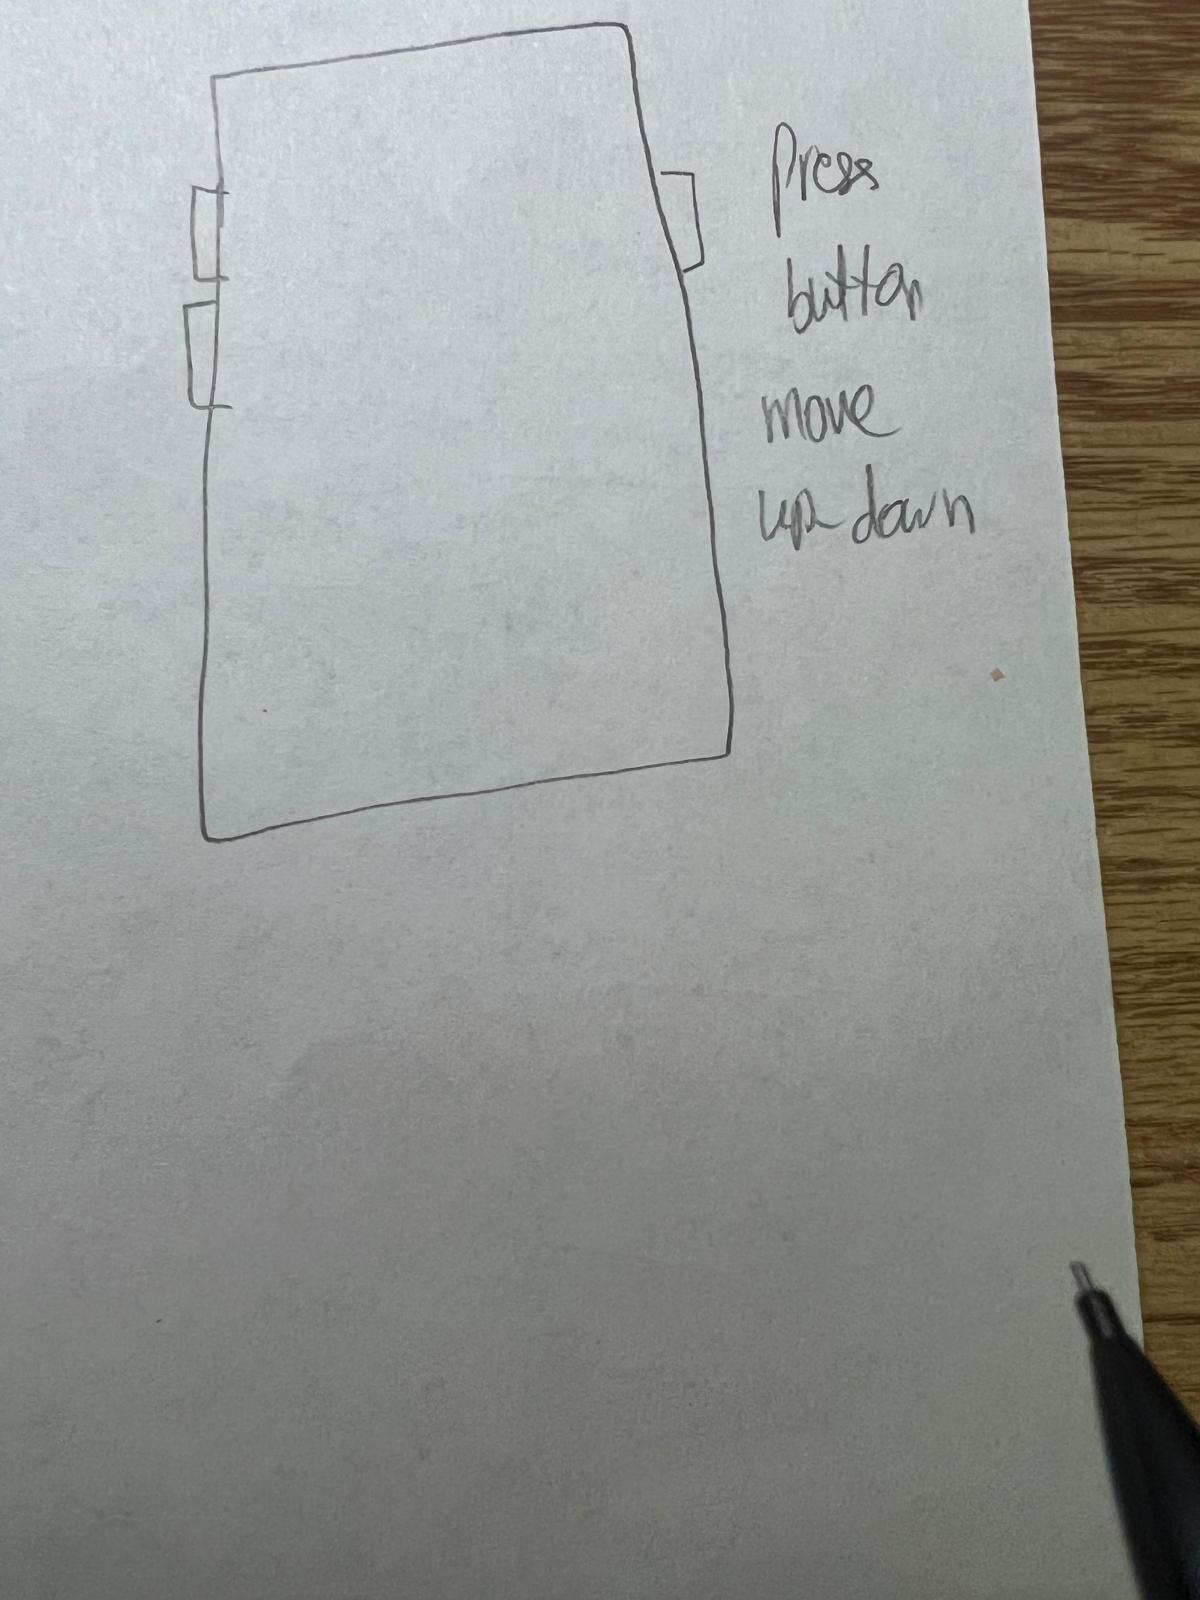 Press
button
move
up down